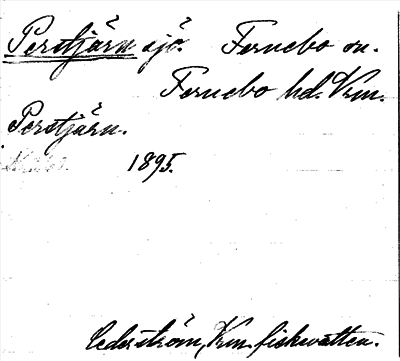 Perstjärn sjö. Fernebo sn.
Fernebo hd. Vrm.
Perstjärn.
1895.
Cederström, Vrm. fiskvatten.